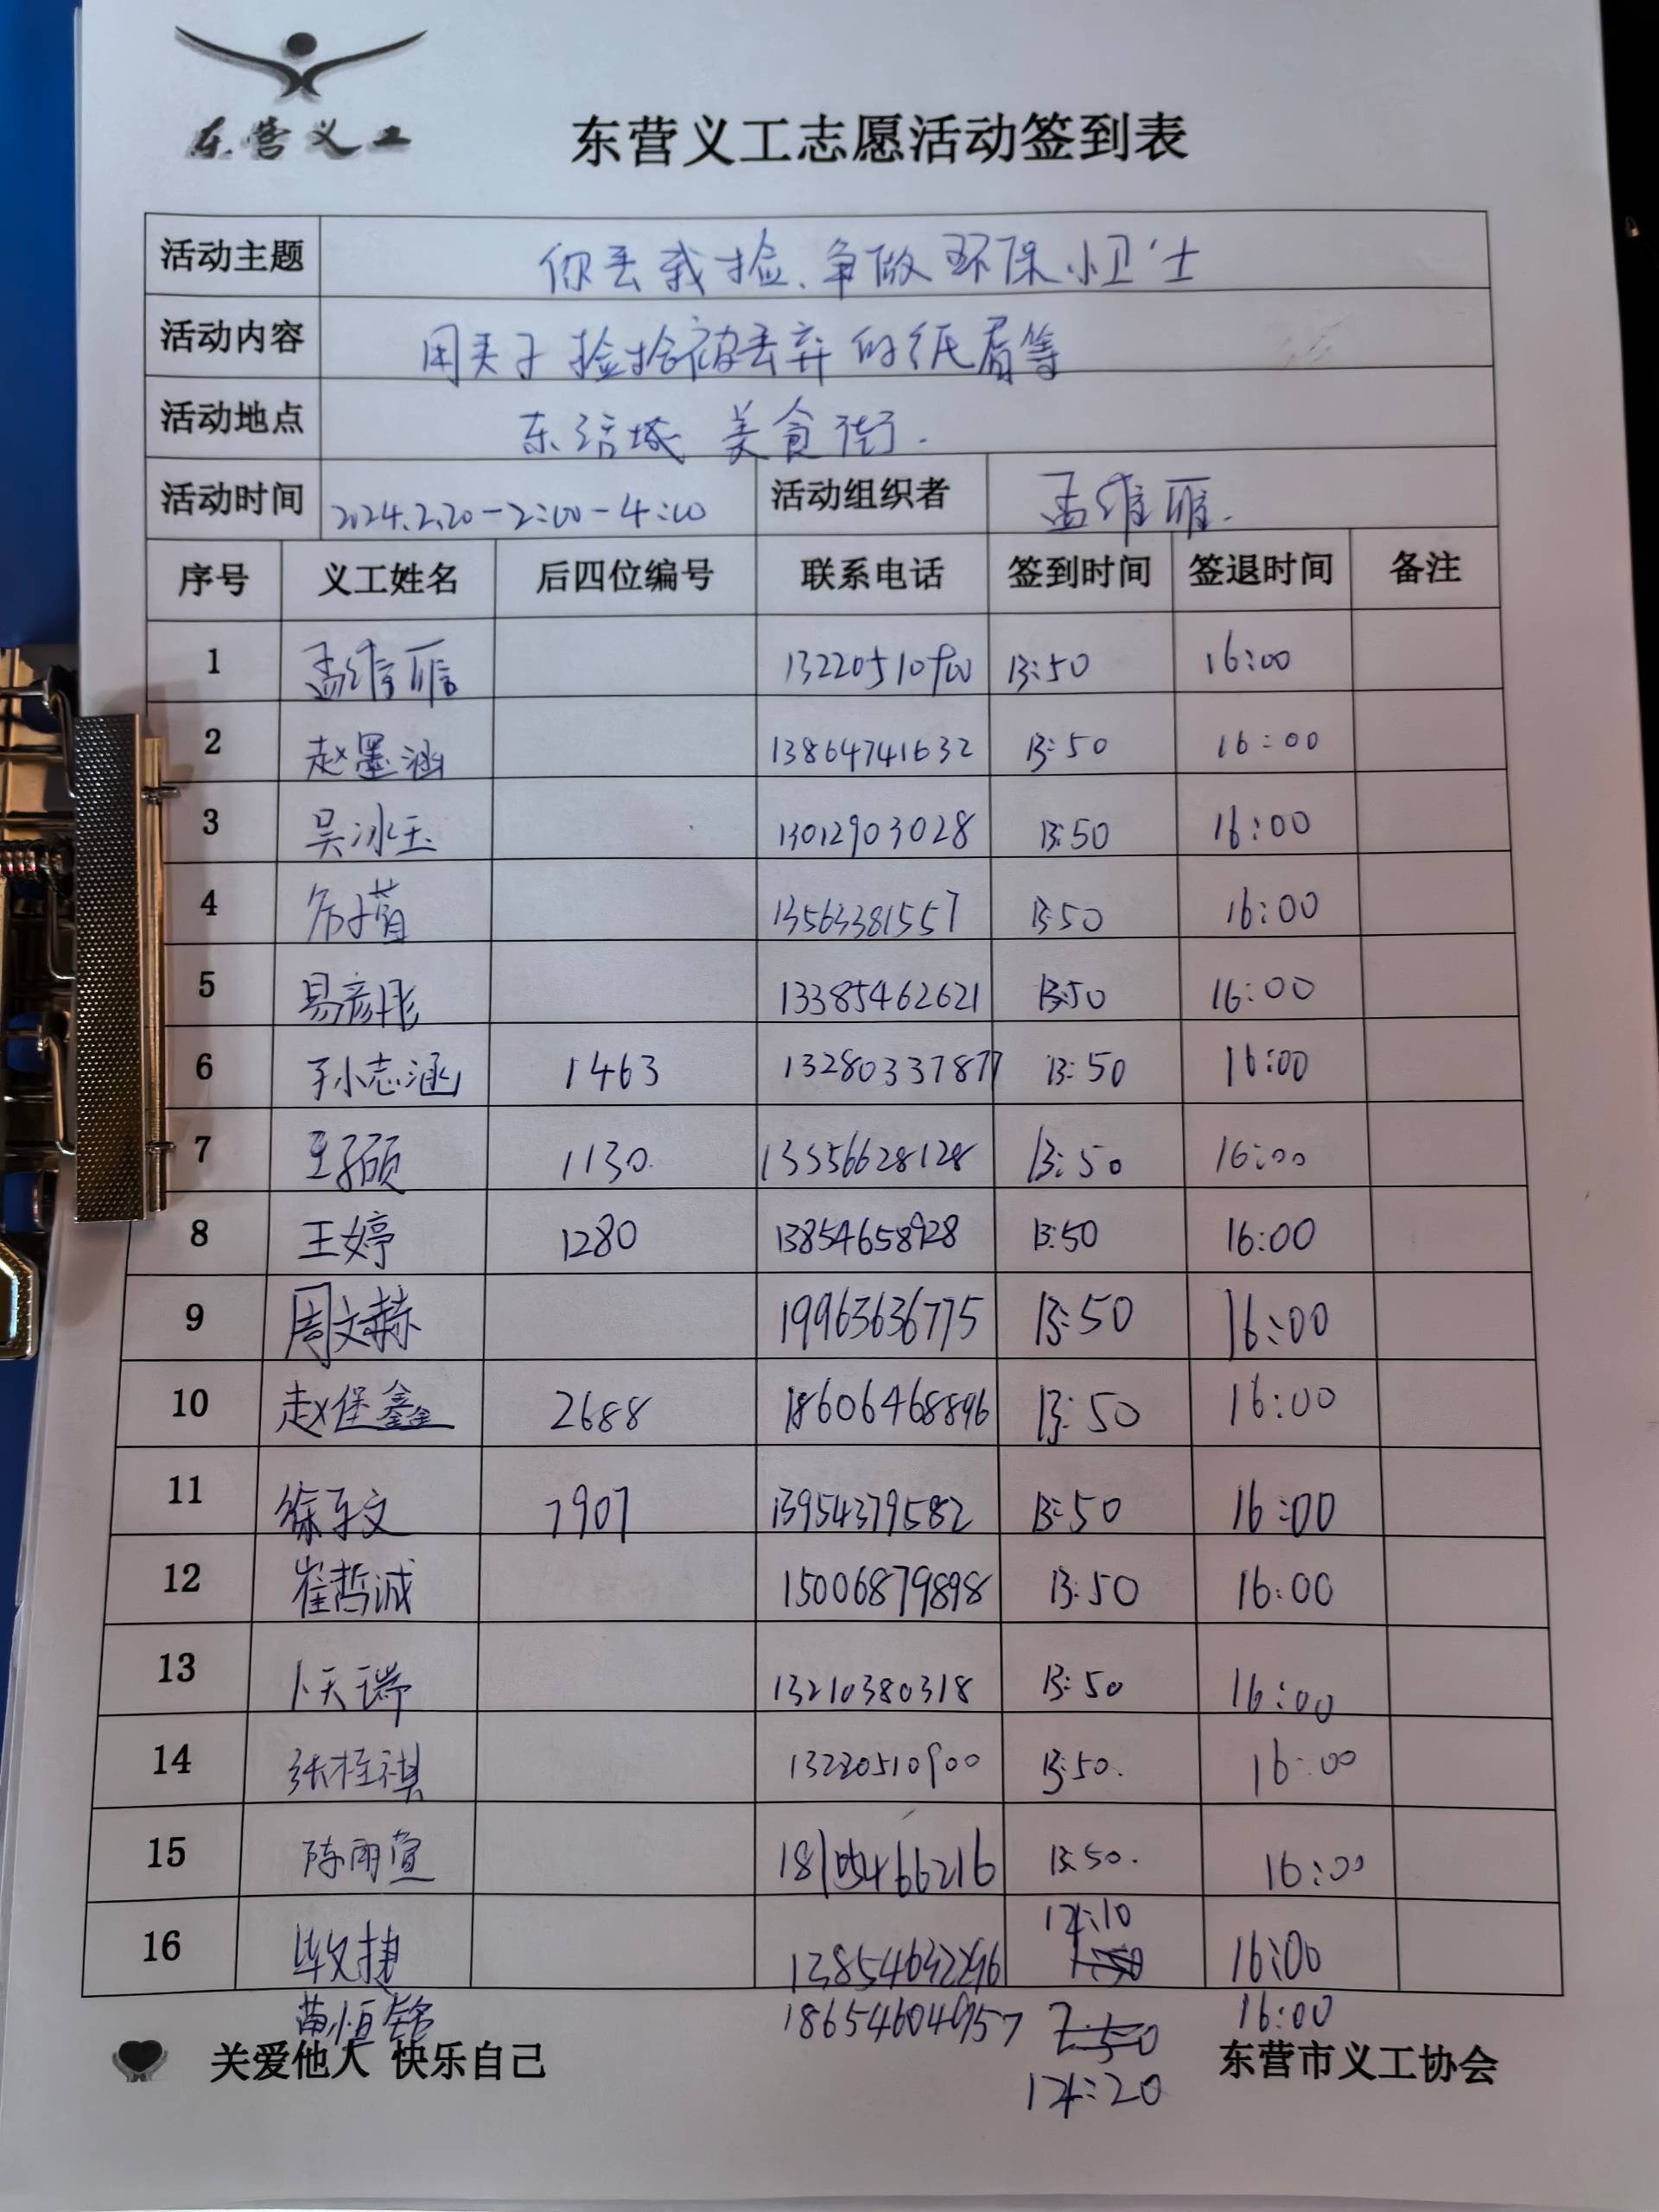 东营义工
东营义工志愿活动签到表
活动主题 你丢我捡、争做环保小卫士
活动内容 用夹子捡拾被丢弃的纸屑等
活动地点 东 城 美食街.
活动时间 2024.2.20-2:00-4:00 活动组织者 孟维雁.
序号 义工姓名 后四位编号 联系电话 签到时间 签退时间 备注
1 孟维雁 13220510900 13:50 16:00
2 赵墨涵 13864741632 13:50 16:00
3 吴冰玉 13012903028 13:50 16:00
4 13563381557 13:50 16:00
5 易彦彤 13385462621 13:50 16:00
6 于小志涵 1463 13280337877 13:50 16:00
7 王子硕 1130. 13356628128 13:50 16:00
8 王婷 1280 13854658928 13:50 16:00
9 周文赫 19963636775 13:50 16:00
10 赵保鑫 2688 18606468896 13:50 16:00
11 徐子文 7907 13954379582 13:50 16:00
12 崔哲诚 15006879898 13:50 16:00
13 卜天瑞 13210380318 13:50 16:00
14 张桂祺 13220510900 13:50. 16:00
15 陈雨萱 18105466216 13:50. 16:00
14:10
16 毕文捷 13854632296 16:00
苗恒铭 18654604957 7:50 16:00
关爱他人 快乐自己 东营市义工协会
14:20